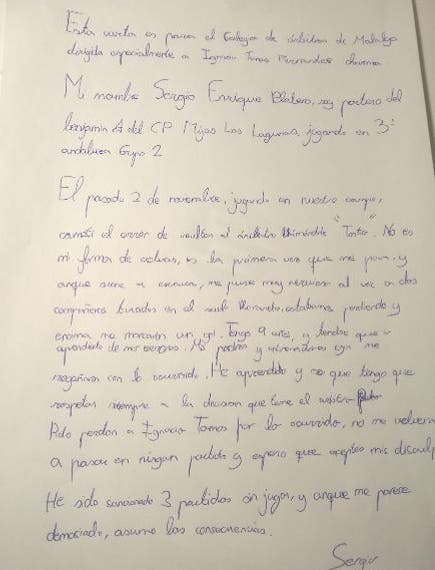 Esta carta es para el Colegio de árbitros de Malaga
dirigida especialmente a Ignacio Tomas
Mi nombre Sergio Enrique, soy portero del
benjamin A del CP Mijas Las Lagunas, jugando en 3ª
andaluza Grupo 2
El pasado 2 de noviembre, jugando en nuestro campo,
cometi el error de insultar al árbitro llamándole "Tonto". No es
mi forma de actuar, es la primera vez que me pasa, y
anque suene a excusa, me puse muy nervioso al ver a dos
compañeros tirados en el suelo llorando, estabamos perdiendo y
encima me marcaron un gol. Tengo 9 años, y tendre que
aprender de mis errores. Mis padres y entrenadores me
regañaron con lo ocurrido. He aprendido y se que tengo que
respetar siempre a la decision que tome el
Pido perdon a Ignacio Tomas por lo ocurrido, no me volvera
a pasar en ningun partido y espero que aceptes mis disculp
He sido sancionado 3 partidos sin jugar, y anque me parece
demasiado, asumo las consecuencias.
Sergio